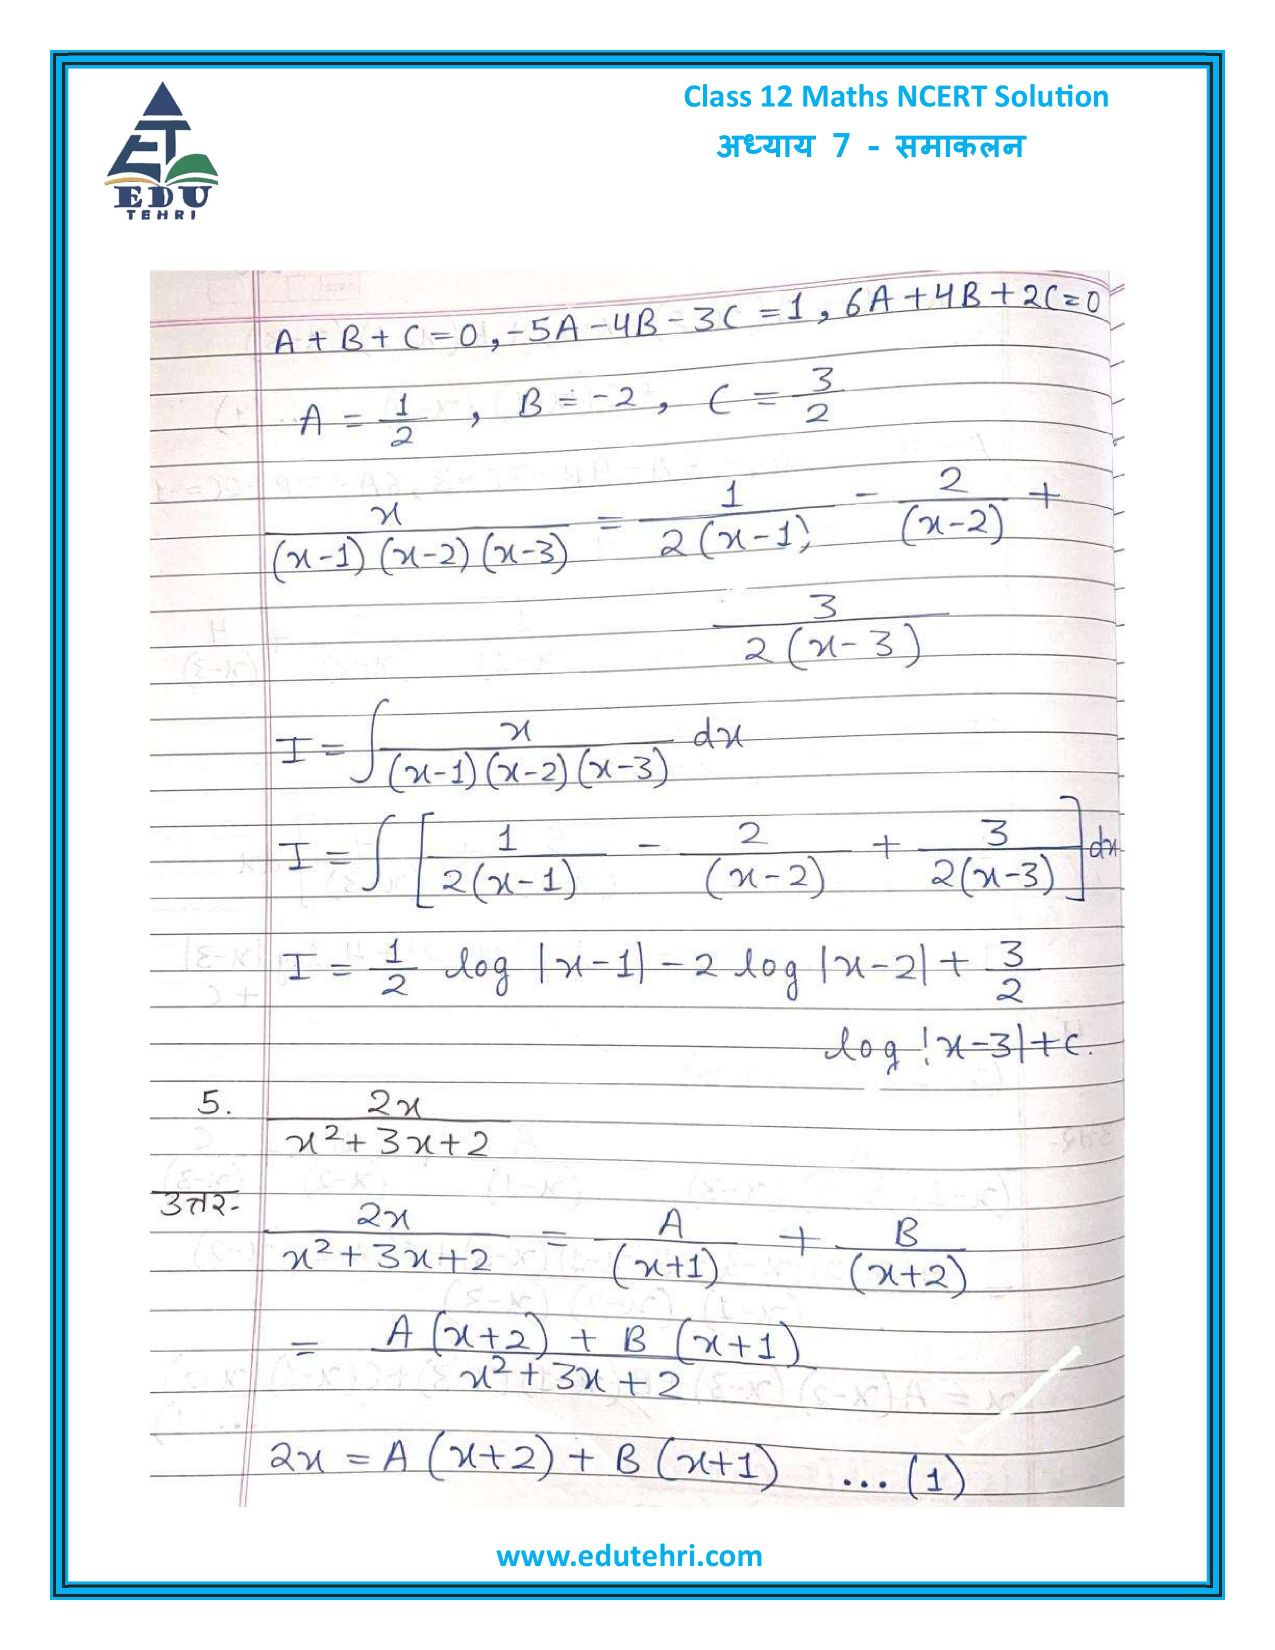 EDU
TEHRI
Class 12 Maths NCERT Solution
अध्याय 7 - समाकलन
A + B + C = 0, -5A - 4B - 3C = 1, 6A + 4B + 2C = 0
A = 1/2, B = -2, C = 3/2
x/((x-1)(x-2)(x-3)) = 1/(2(x-1)) - 2/(x-2) +
3/(2(x-3))
I = ∫ x/((x-1)(x-2)(x-3)) dx
I = ∫ [1/(2(x-1)) - 2/(x-2) + 3/(2(x-3))] dx
I = 1/2 log |x-1| - 2 log |x-2| + 3/2
log |x-3| + c.
5. 2x/(x²+3x+2)
उत्तर- 2x/(x²+3x+2) = A/(x+1) + B/(x+2)
= (A(x+2) + B(x+1))/(x²+3x+2)
2x = A(x+2) + B(x+1) ...(1)
www.edutehri.com